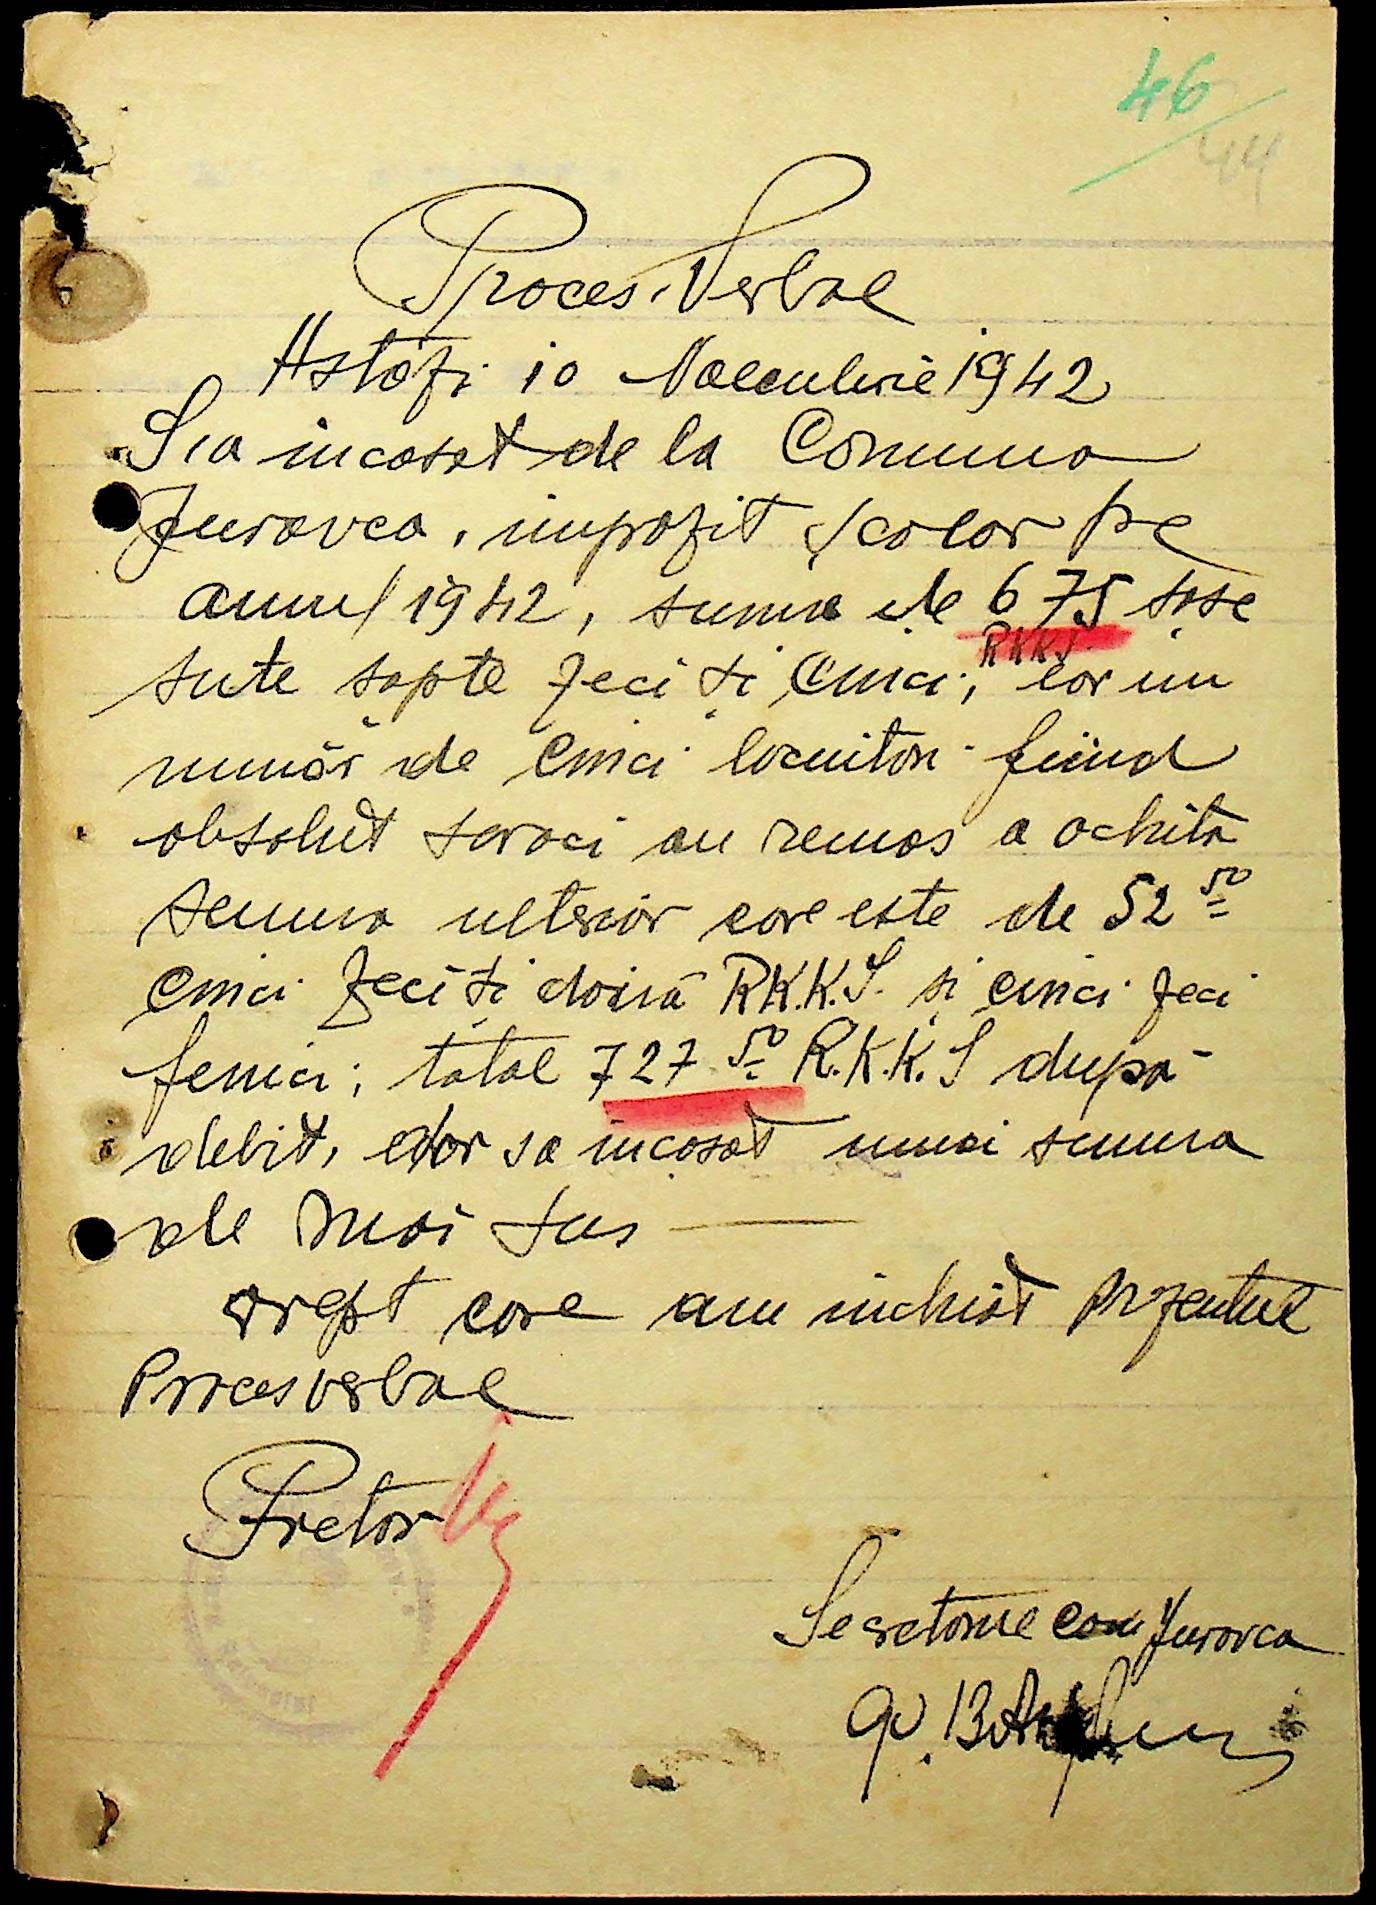 46
44
Proces-Verbal
Astăzi 10 Noembrie 1942
S'a incasat de la Comuna
Juravca, impozit școlar pe
anul 1942, suma de 675 șase
RKKS
sute șapte zeci și cinci, iar un
număr de cinci locuitori fiind
absolut saraci au remas a achita
suma ulterior care este de 52 50
cinci zeci și două RK.K.S. și cinci zeci
fenici; total 727 50 R.K.K.S după
debit, dar sa incasat numai suma
de mai sus —
drept care am inchiat prezentul
Proces verbal
Pretor
Secretarul com Juravca